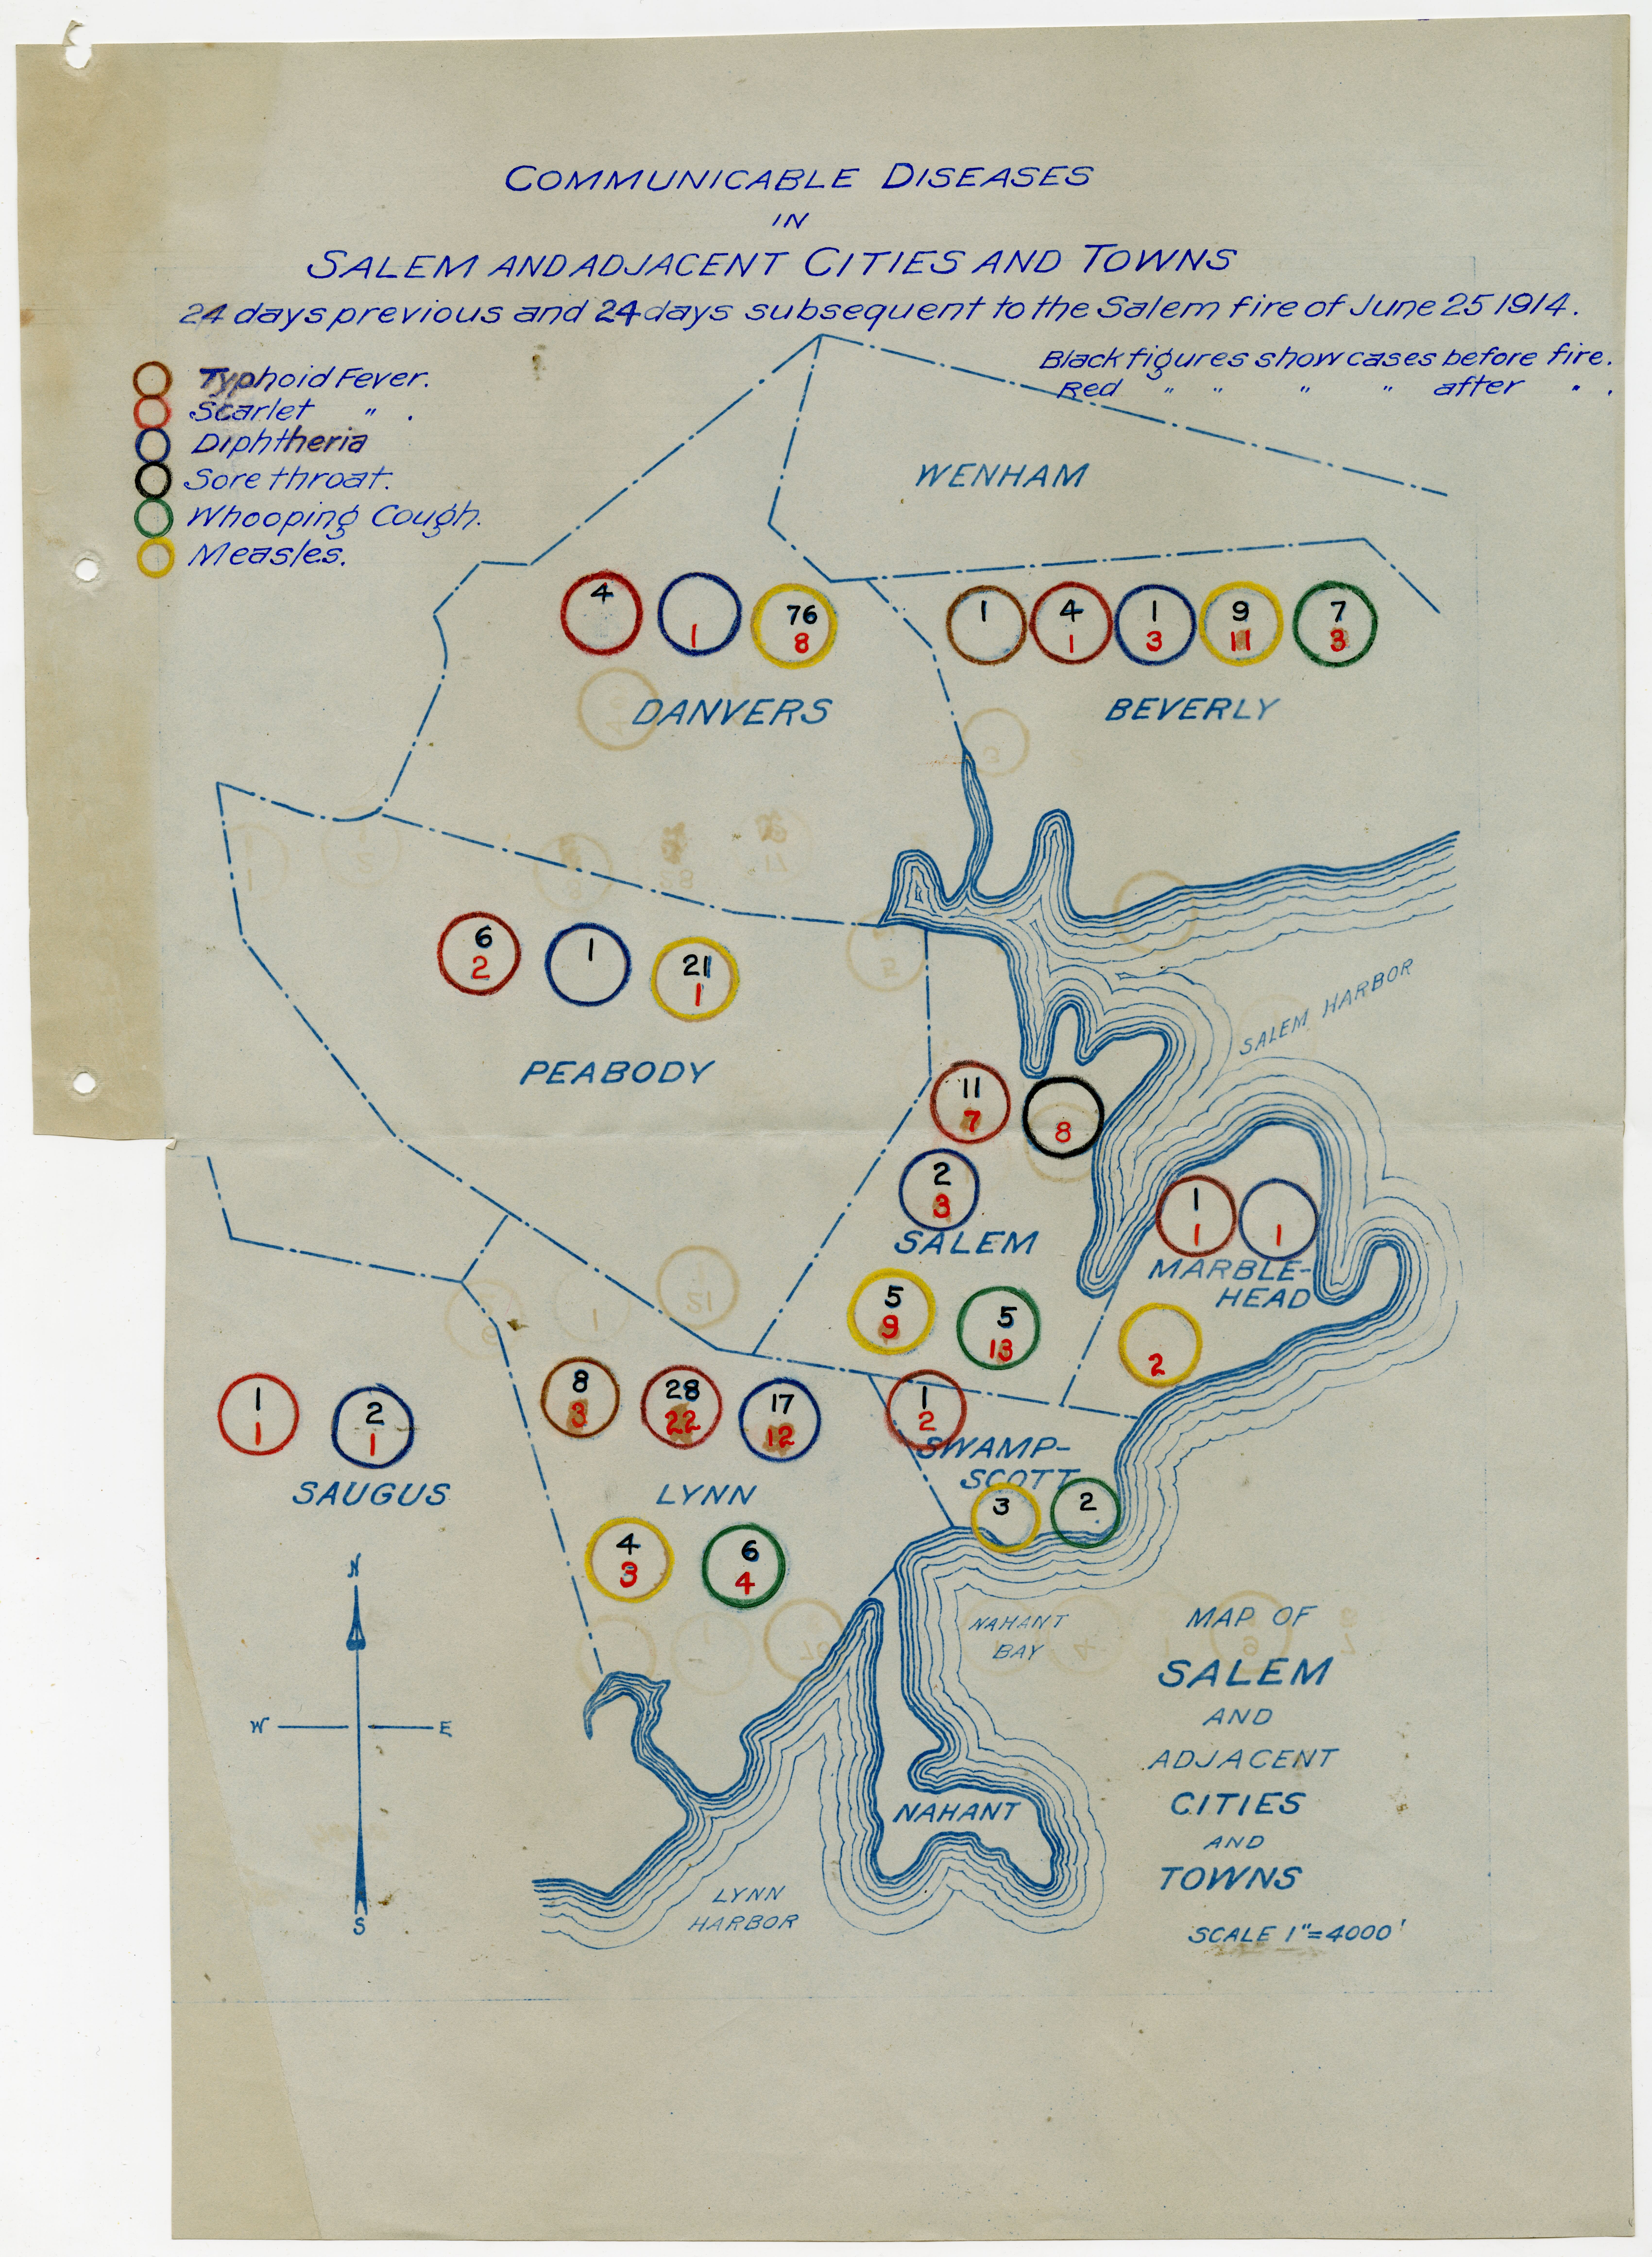 COMMUNICABLE DISEASES
IN
SALEM AND ADJACENT CITIES AND TOWNS
24 days previous and 24 days subsequent to the Salem fire of June 25 1914.
Black figures show cases before fire.
Red " " " " after " .
Typhoid Fever.
Scarlet " .
Diphtheria
Sore throat.
Whooping Cough.
Measles.
WENHAM
4
1
76
8
DANVERS
1
4
1
1
3
9
11
7
3
BEVERLY
6
2
1
21
1
PEABODY
SALEM HARBOR
11
7
8
2
3
SALEM
5
9
5
13
1
1
1
MARBLE-
HEAD
2
1
1
2
1
SAUGUS
8
3
28
22
17
12
LYNN
4
3
6
4
1
2
SWAMP-
SCOTT
3
2
N
W E
S
NAHANT
BAY
NAHANT
LYNN
HARBOR
MAP OF
SALEM
AND
ADJACENT
CITIES
AND
TOWNS
SCALE 1"=4000'